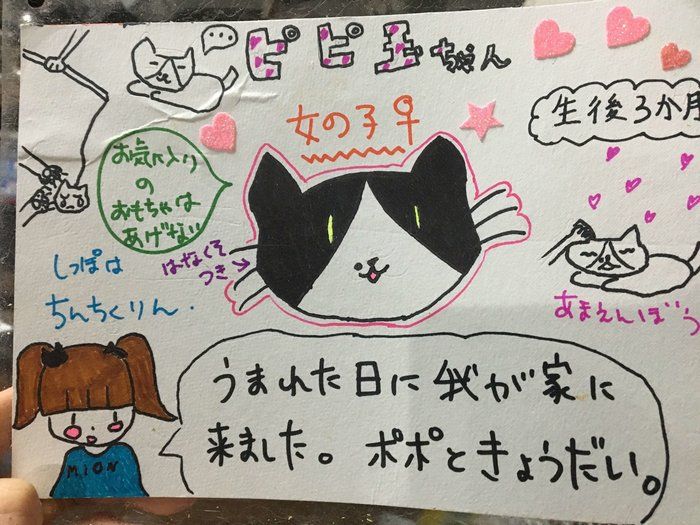 ピピ王ちゃん
女の子♀
生後3か月
お気に入り
の
おもちゃは
あげない
はなくそ
つき→
しっぽは
ちんちくりん.
あまえんぼう
うまれた日に我が家に
来ました。ポポときょうだい。
MION